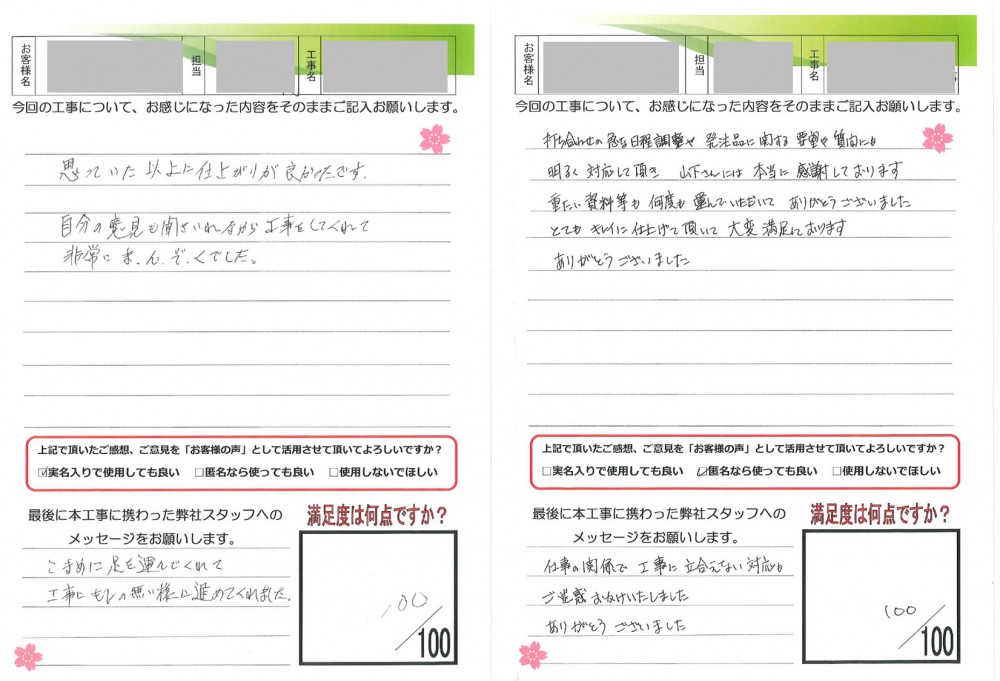 お客様名
担当
工事名
今回の工事について、お感じになった内容をそのままご記入お願いします。
思っていた以上に仕上がりが良かったです.
自分の意見も聞きいれながら工事をしてくれて
非常にま.ん.ぞ.くでした。
上記で頂いたご感想、ご意見を「お客様の声」として活用させて頂いてよろしいですか?
☑実名入りで使用しても良い □匿名なら使っても良い □使用しないでほしい
最後に本工事に携わった弊社スタッフへの
メッセージをお願いします。
こまめに足を運んでくれて
工事にもれの無い様に進めてくれました.
満足度は何点ですか?
100/100
お客様名
担当
工事名
今回の工事について、お感じになった内容をそのままご記入お願いします。
打ち合わせの急な日程調整や 発注品に関する要望や質問にも
明るく対応して頂き 山下さんには本当に感謝しております
重たい資料等も何度も運んでいただいて ありがとうございました
とてもキレイに仕上げて頂いて 大変満足しております
ありがとうございました
上記で頂いたご感想、ご意見を「お客様の声」として活用させて頂いてよろしいですか?
□実名入りで使用しても良い ☑匿名なら使っても良い □使用しないでほしい
最後に本工事に携わった弊社スタッフへの
メッセージをお願いします。
仕事の関係で工事に立合えない対応も
ご迷惑おかけいたしました
ありがとうございました
満足度は何点ですか?
100/100